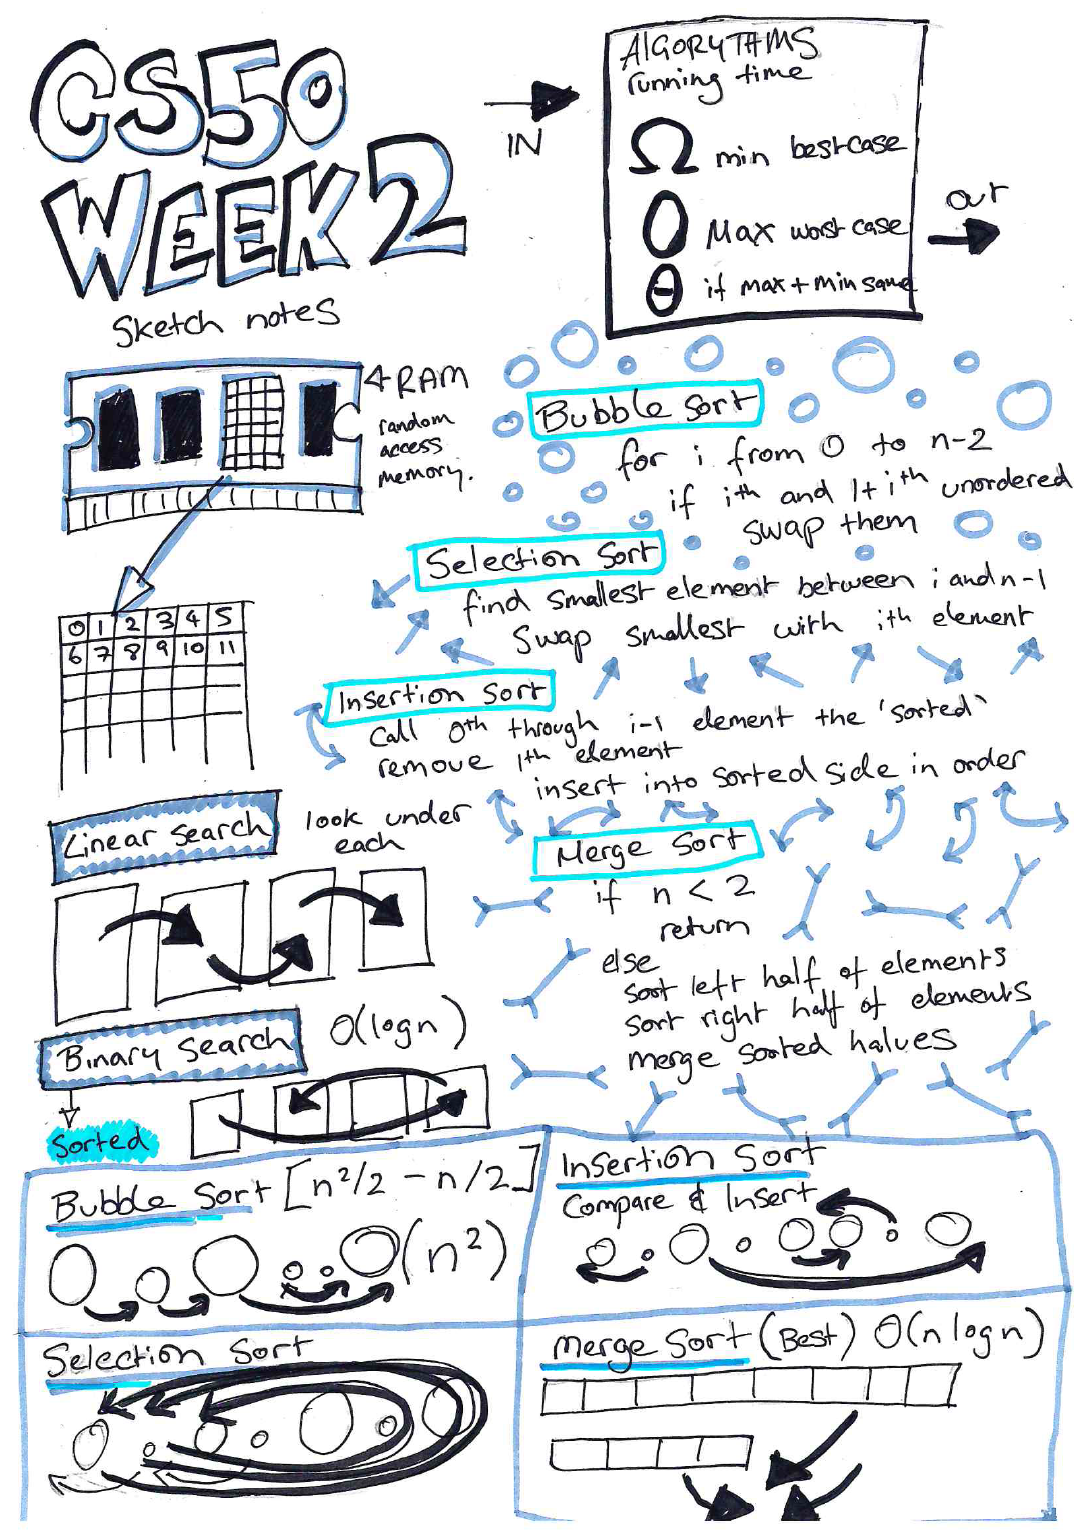 CS50
WEEK 2
Sketch notes
IN
ALGORYTHMS
running time
Ω min best case
O Max worst case
Θ if max + min same
OUT
RAM
random
access
memory.
0 1 2 3 4 5
6 7 8 9 10 11
Bubble Sort
for i from 0 to n-2
if ith and 1+ith unordered
swap them
Selection Sort
find smallest element between i and n-1
Swap smallest with ith element
Insertion Sort
Call 0th through i-1 element the 'sorted'
remove ith element
insert into sorted side in order
Linear Search
look under
each
Merge Sort
if n < 2
return
else
Sort left half of elements
Sort right half of elements
merge sorted halves
Binary Search
O(log n)
Sorted
Bubble Sort [n²/2 - n/2]
(n²)
Insertion Sort
Compare & Insert
Selection Sort
Merge Sort (Best) O(n log n)